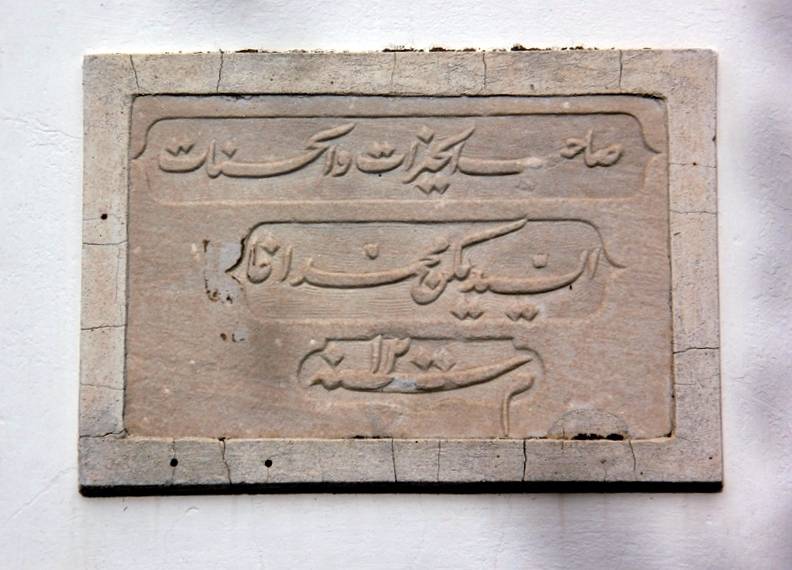 صاحب الخيرات والحسنات
السيد يكن محمد اغا
سنة ١٢٠٠ م